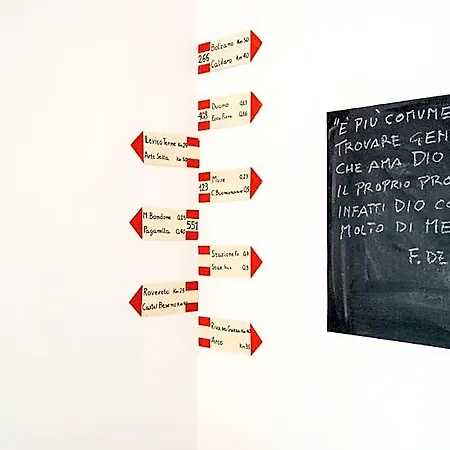 Bolzano Km 50
266
Caldaro Km 40
Duomo 0,03
408
0,06
Levico Terme Km 25
Arte Sella Km 50
Muse 0,25
123
C. Buonconsiglio
M. Bondone 0,25
551
Paganella 0,40
Stazione Fs
Staz. bus
Rovereto Km 25
Castel Beseno Km
Riva del Garda Km 40
Arco Km 35
"È PIÙ COMUNE
TROVARE GEN
CHE AMA DIO
IL PROPRIO PRO
INFATTI DIO CO
MOLTO DI ME
F. DE